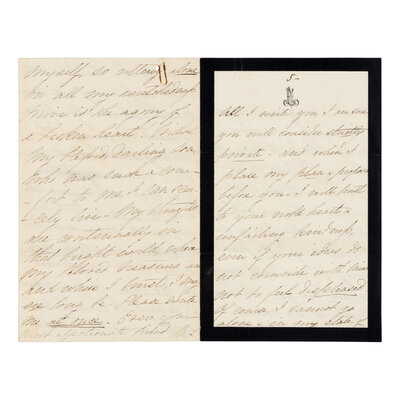 myself, so utterly alone
in all my wretchedness
mine is the agony of
a broken heart. Without
my blessed darling Son,
who was such a com-
fort to me I can scar-
cely live - My thoughts
are continually on
that bright world, where
my beloved treasures are
and where I trust I may
ere long be. Please write
me at once. Ever your
most affectionate friend
5-
All I write you, I am sure
you will consider strictly
private - and when I
place my plans
before you - I will trust
to your noble heart &
unfailing kindness,
even if your ideas do
not coincide with mine
not to feel displeased
Of course I cannot go
alone - in my state of